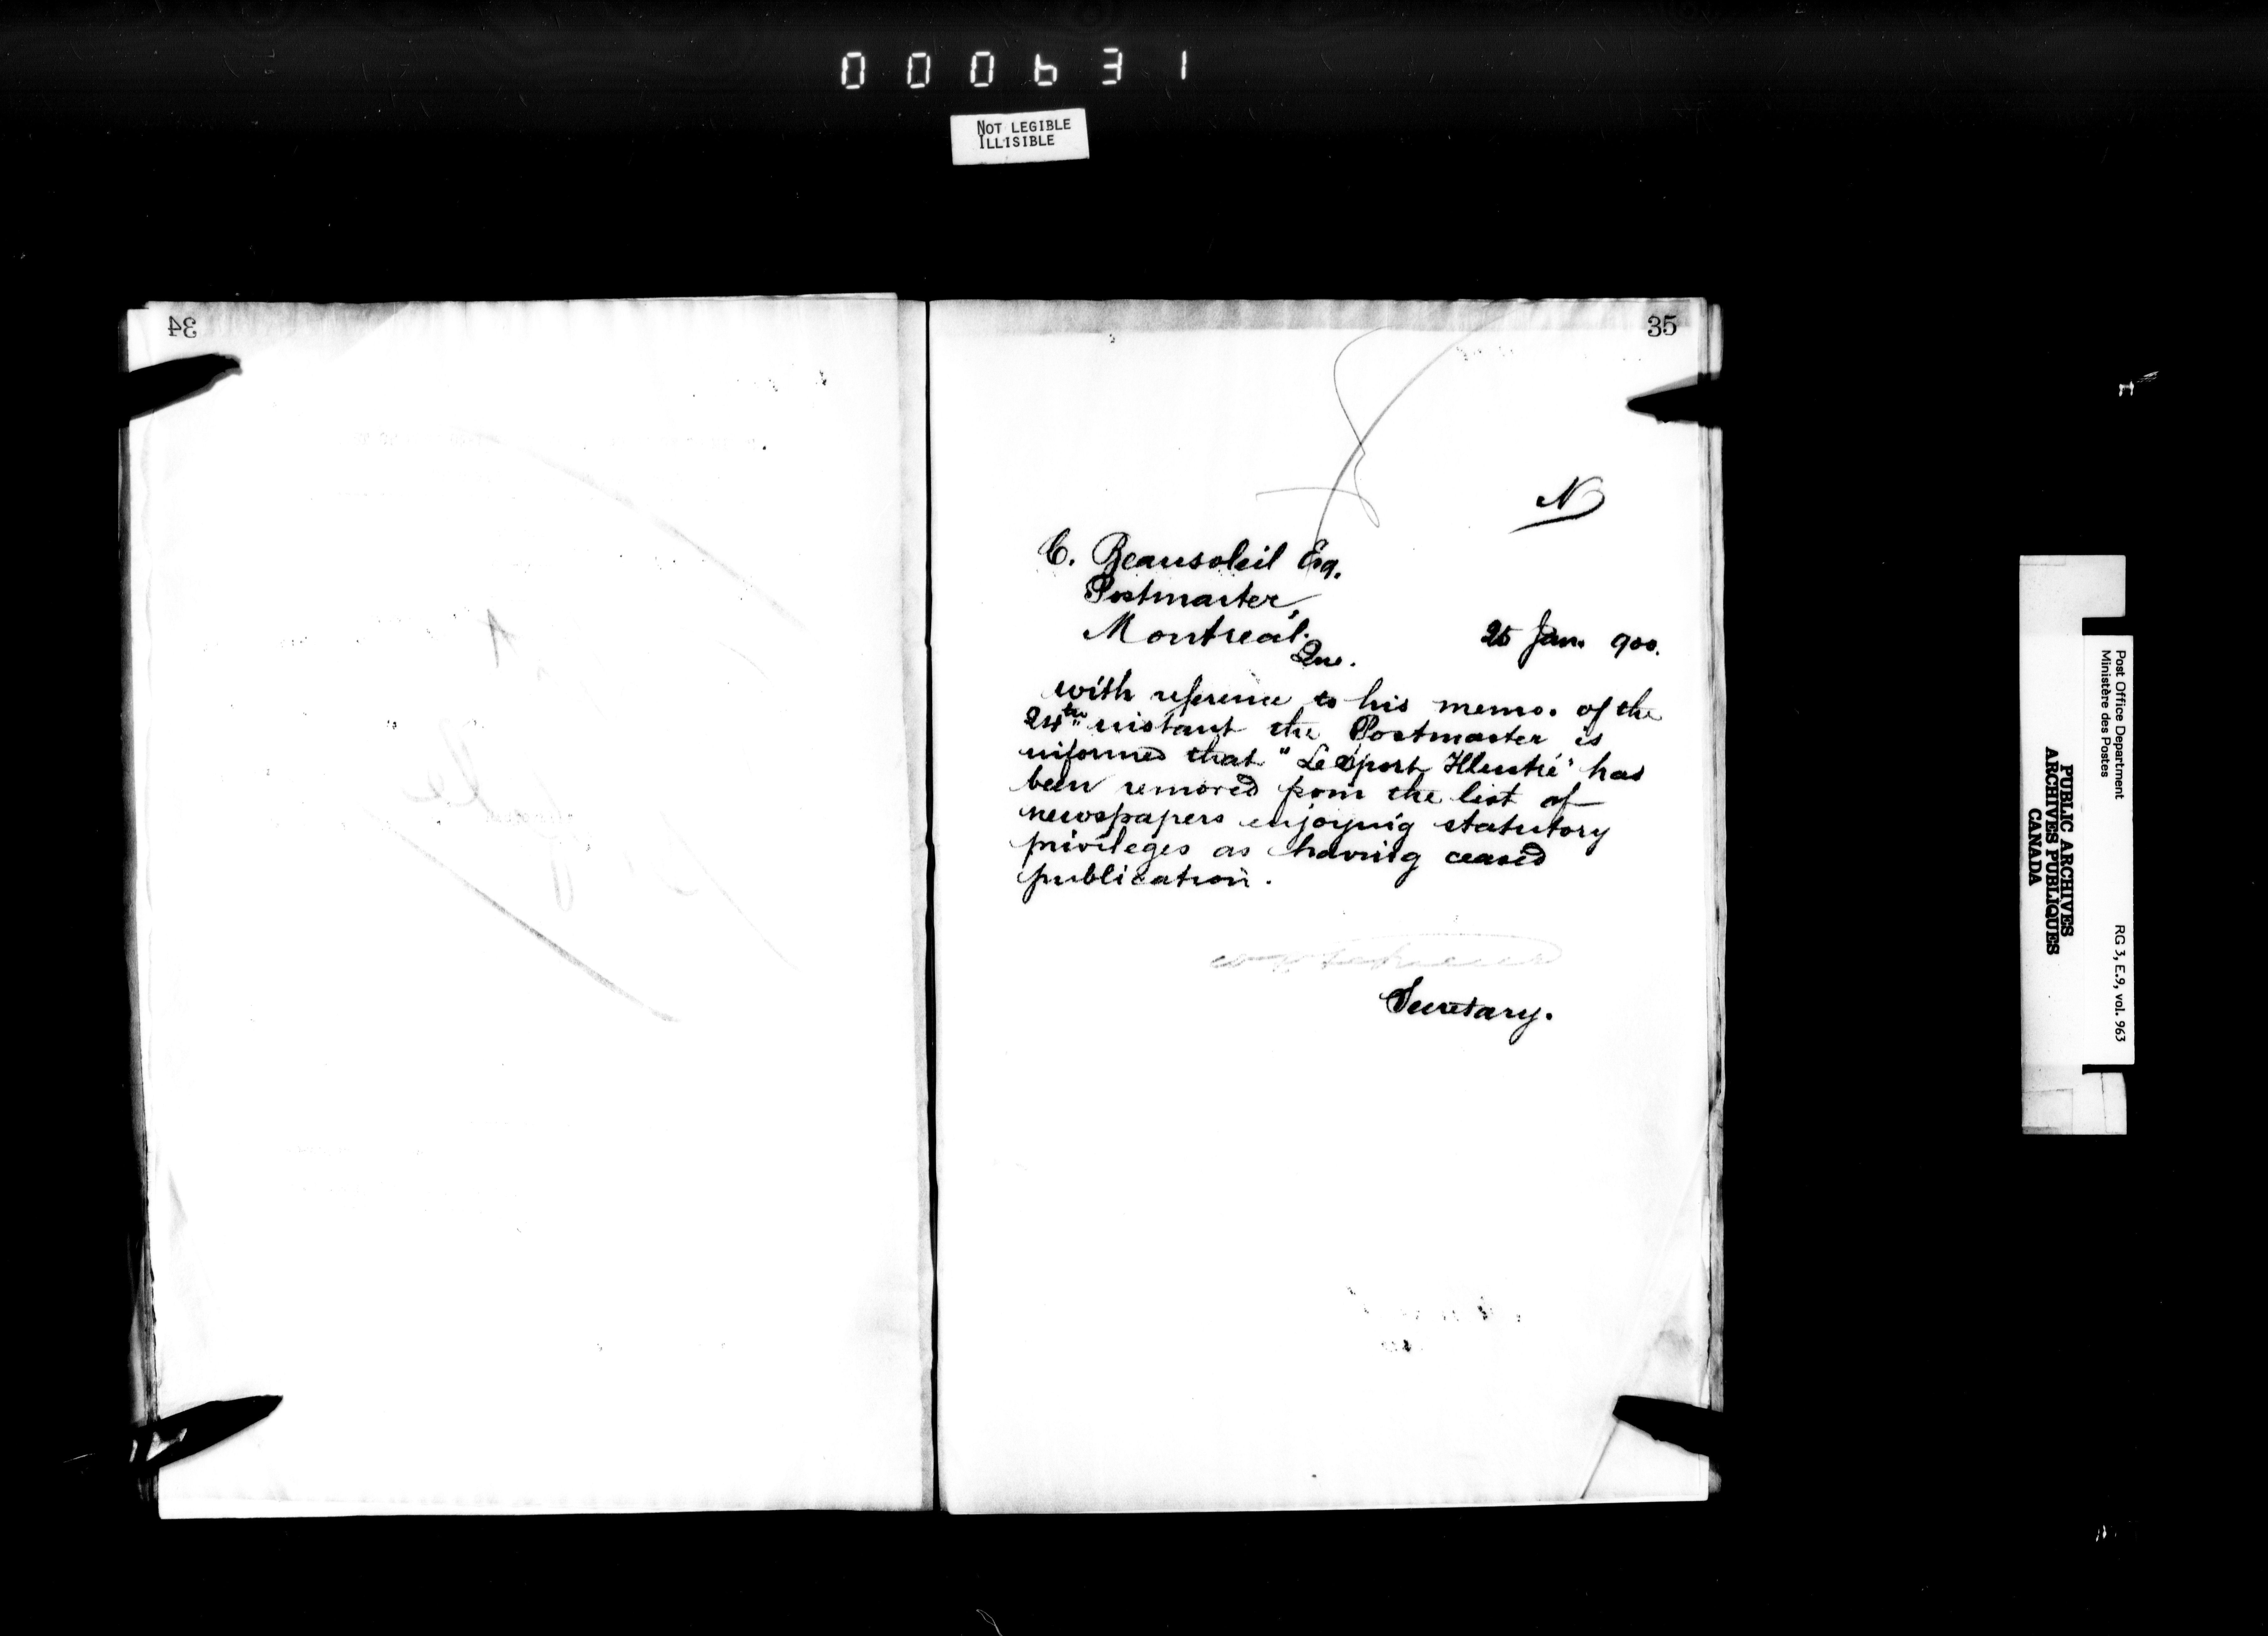 000631
NOT LEGIBLE
ILLISIBLE
34
35
N
C. Beausoleil Esq.
Postmaster,
Montreal.
Que.
25 Jan. 900.
with reference to his memo. of the
24th instant the Postmaster is
informed that "Le Sport Illustré" has
been removed from the list of
newspapers enjoying statutory
privileges as having ceased
publication.
Secretary.
Post Office Department
Ministère des Postes
RG 3, E.9, vol. 963
PUBLIC ARCHIVES
ARCHIVES PUBLIQUES
CANADA